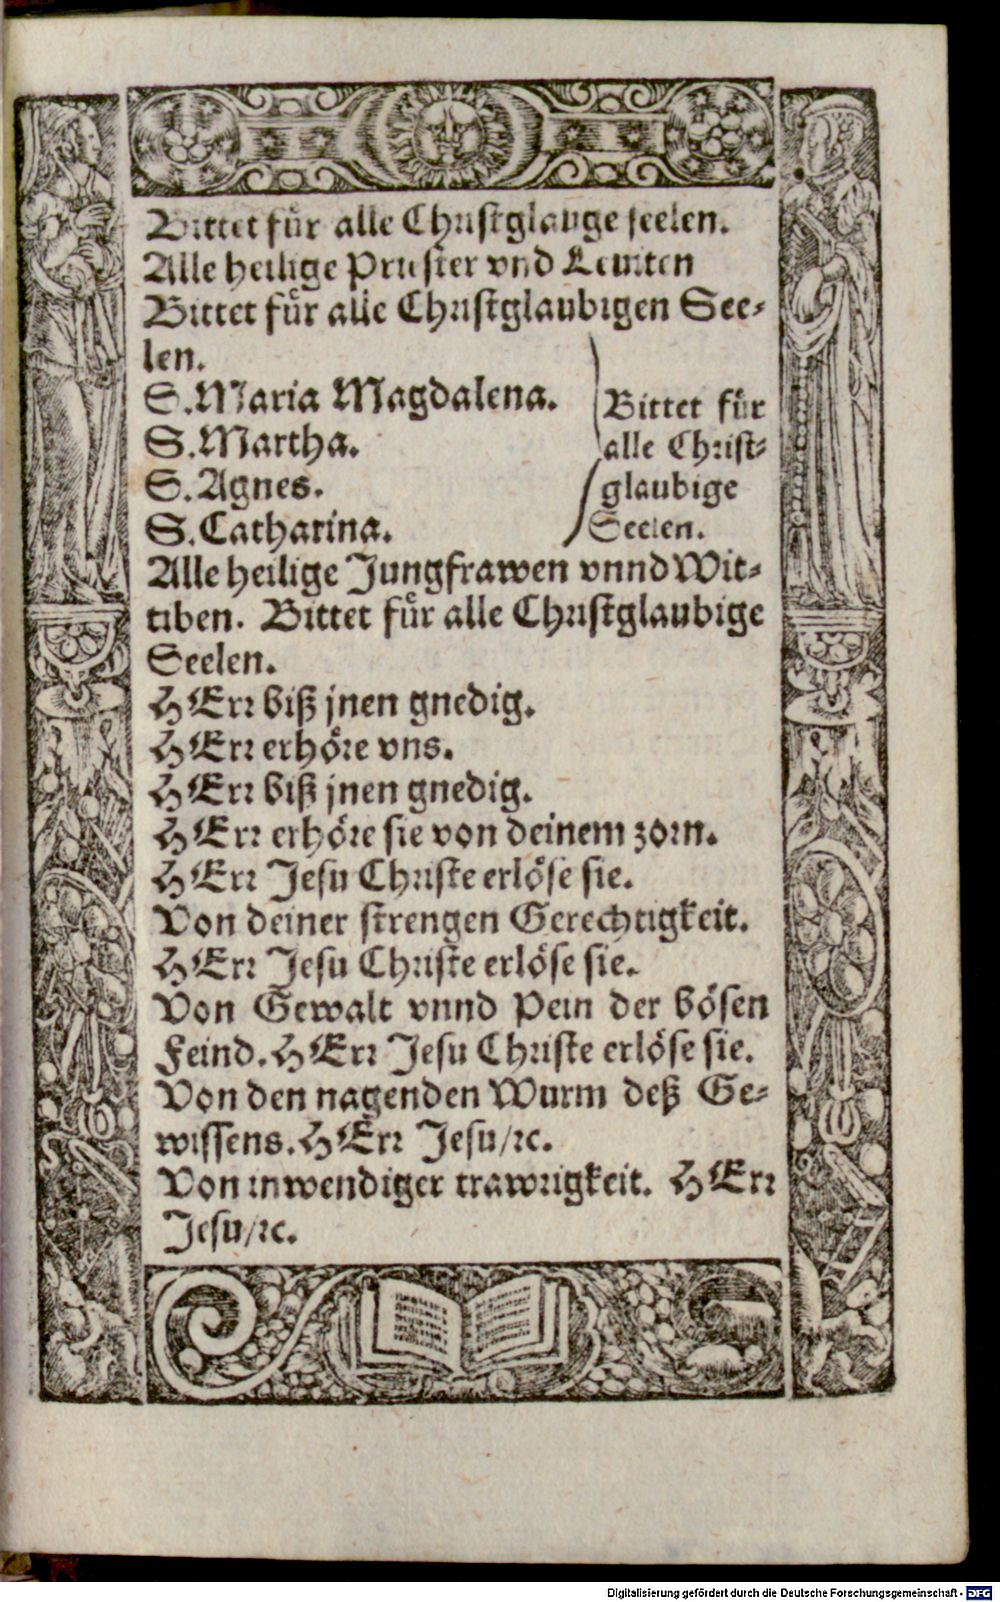 Bittet für alle Christglauge seelen.
Alle heilige Priester vnd Leuiten
Bittet für alle Christglaubigen See-
len.
S. Maria Magdalena.
S. Martha.
S. Agnes.
S. Catharina.
Bittet für
alle Christ-
glaubige
Seelen.
Alle heilige Jungfrawen vnnd Wit-
tiben. Bittet für alle Christglaubige
Seelen.
HErr biß jnen gnedig.
HErr erhöre vns.
HErr biß jnen gnedig.
HErr erhöre sie von deinem zorn.
HErr Jesu Christe erlöse sie.
Von deiner strengen Gerechtigkeit.
HErr Jesu Christe erlöse sie.
Von Gewalt vnnd Pein der bösen
Feind. HErr Jesu Christe erlöse sie.
Von den nagenden Wurm deß Ge-
wissens. HErr Jesu/ꝛc.
Von inwendiger trawrigkeit. HErr
Jesu/ꝛc.
Digitalisierung gefördert durch die Deutsche Forschungsgemeinschaft - DFG